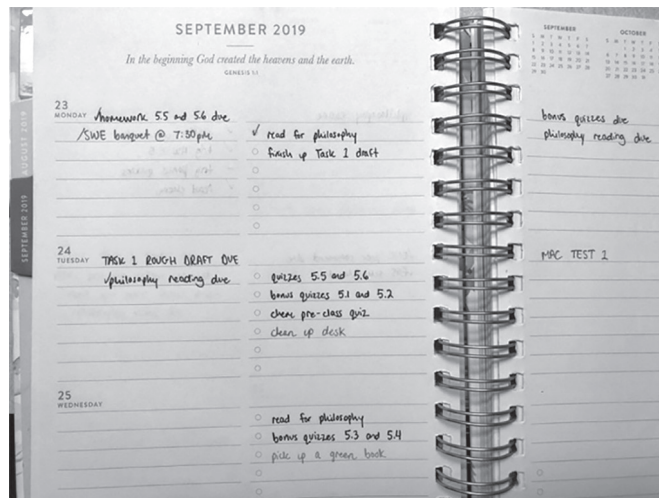 SEPTEMBER 2019
In the beginning God created the heavens and the earth.
GENESIS 1:1
23
MONDAY
homework 5.5 and 5.6 due
SWE banquet @ 7:30pm
read for philosophy
finish up Task 1 draft
24
TUESDAY
TASK 1 ROUGH DRAFT DUE
philosophy reading due
quizzes 5.5 and 5.6
bonus quizzes 5.1 and 5.2
chem pre-class quiz
clean up desk
25
WEDNESDAY
read for philosophy
bonus quizzes 5.3 and 5.4
pick up a green book
AUGUST 2019
SEPTEMBER 2019
SEPTEMBER
OCTOBER
bonus quizzes due
philosophy reading due
MAC TEST 2